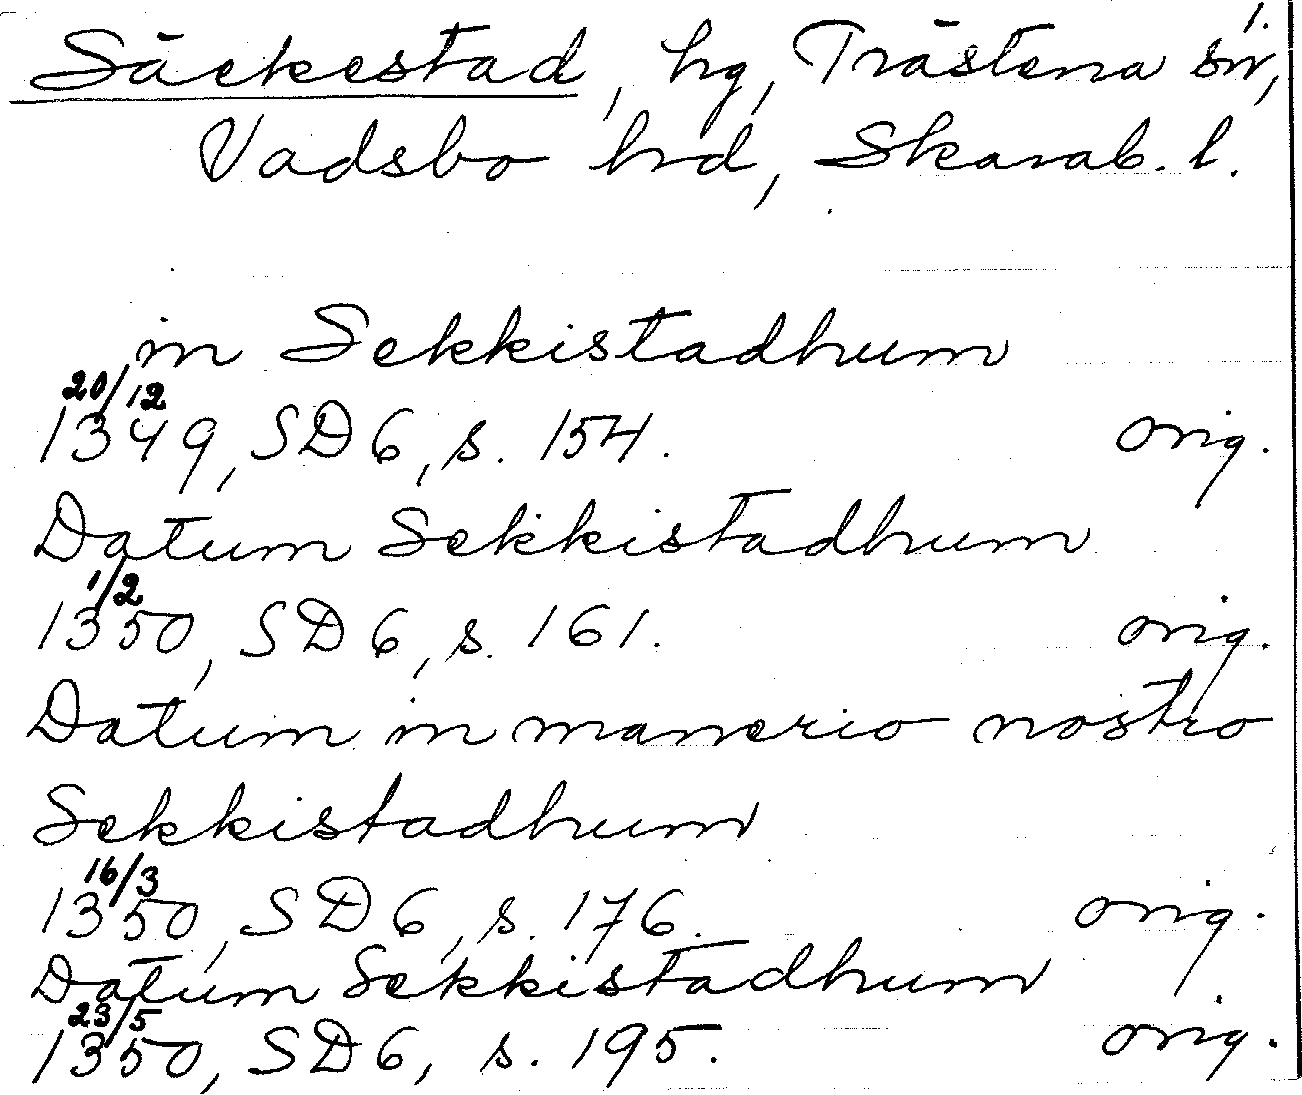 1.
Säckestad, hg, Trästena sn,
Vadsbo hd, Skarab. l.
in Sekkistadhum
20/12
1349, SD 6, s. 154. orig.
Datum Sekkistadhum
1/2
1350, SD 6, s. 161. orig.
Datum in manerio nostro
Sekkistadhum
16/3
1350, SD 6, s. 176. orig.
Datum Sekkistadhum
23/5
1350, SD 6, s. 195. orig.